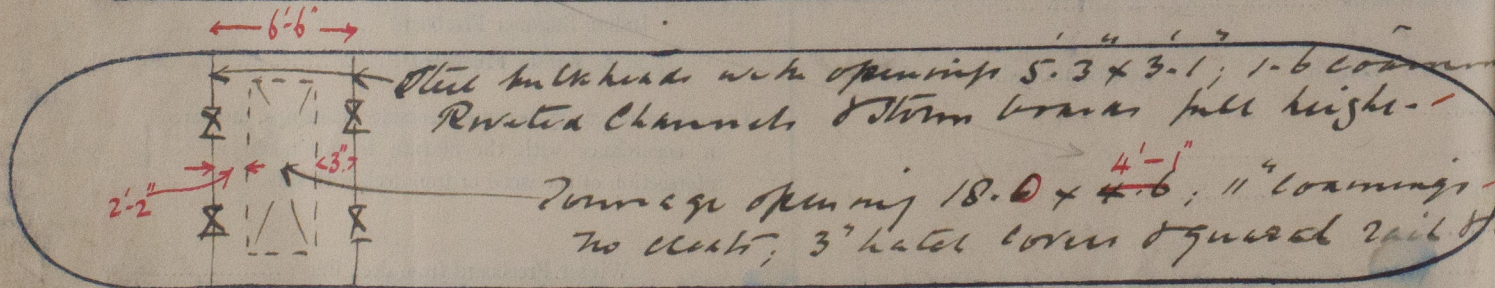 6'-6"
Steel bulkheads with openings 5'.3" x 3'.1"; 1.6
Riveted Channels & Storm boards full height.
2'-2" 3" 4'-1"
Tonnage opening 18.0 x 4.6; 11" coamings
no cleats; 3" hatch covers & guard rail &